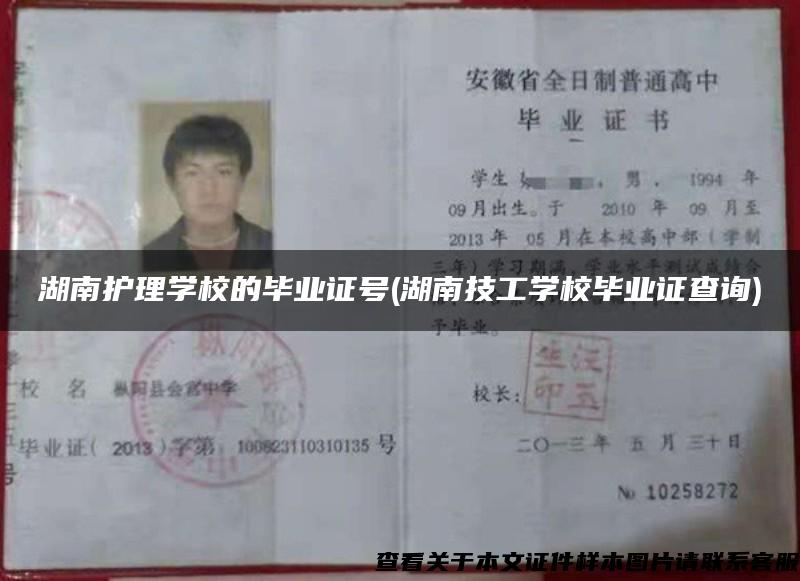 安徽省全日制普通高中
毕业证书
学生 ，男，1994 年
09月出生。于 2010 年 09 月至
2013年 05 月在本校高中部（学制
三年）学习期满，学业水平测试成绩合
湖南护理学校的毕业证号(湖南技工学校毕业证查询)
予毕业。
校长：
校 名 枞阳县会宫中学
毕业证( 2013 )字第 100823110310135 号
二〇一三年 五 月 三十日
№ 10258272
查看关于本文证件样本图片请联系客服